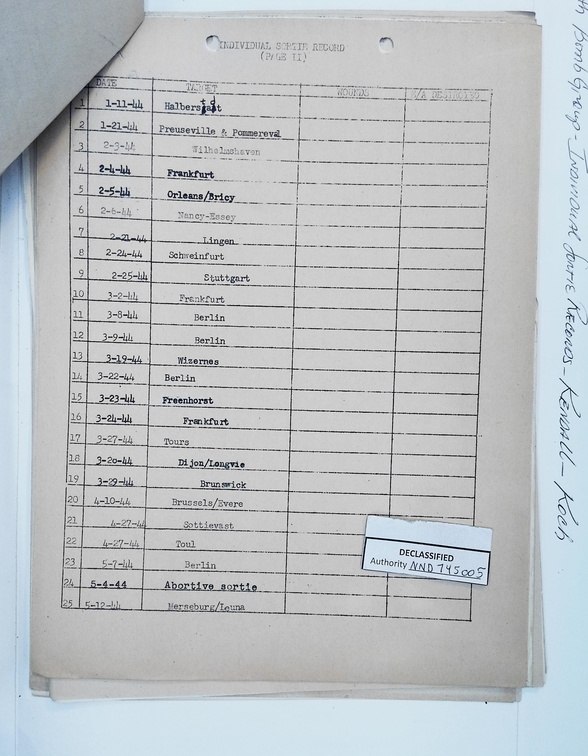 INDIVIDUAL SORTIE RECORD
(PAGE II)
DATE TARGET WOUNDS E/A DESTROYED
1 1-11-44 Halberstadt
2 1-21-44 Preuseville & Pommereval
3 2-3-44 Wilhelmshaven
4 2-4-44 Frankfurt
5 2-5-44 Orleans/Bricy
6 2-6-44 Nancy-Essey
7 2-21-44 Lingen
8 2-24-44 Schweinfurt
9 2-25-44 Stuttgart
10 3-2-44 Frankfurt
11 3-8-44 Berlin
12 3-9-44 Berlin
13 3-19-44 Wizernes
14 3-22-44 Berlin
15 3-23-44 Freenhorst
16 3-24-44 Frankfurt
17 3-27-44 Tours
18 3-20-44 Dijon/Longvie
19 3-29-44 Brunswick
20 4-10-44 Brussels/Evere
21 4-27-44 Sottievast
22 4-27-44 Toul
23 5-7-44 Berlin
24 5-4-44 Abortive sortie
25 5-12-44 Merseburg/Leuna
DECLASSIFIED
Authority NND 745005
th Bomb Group - Individual Sortie Records - Kendall - Koch